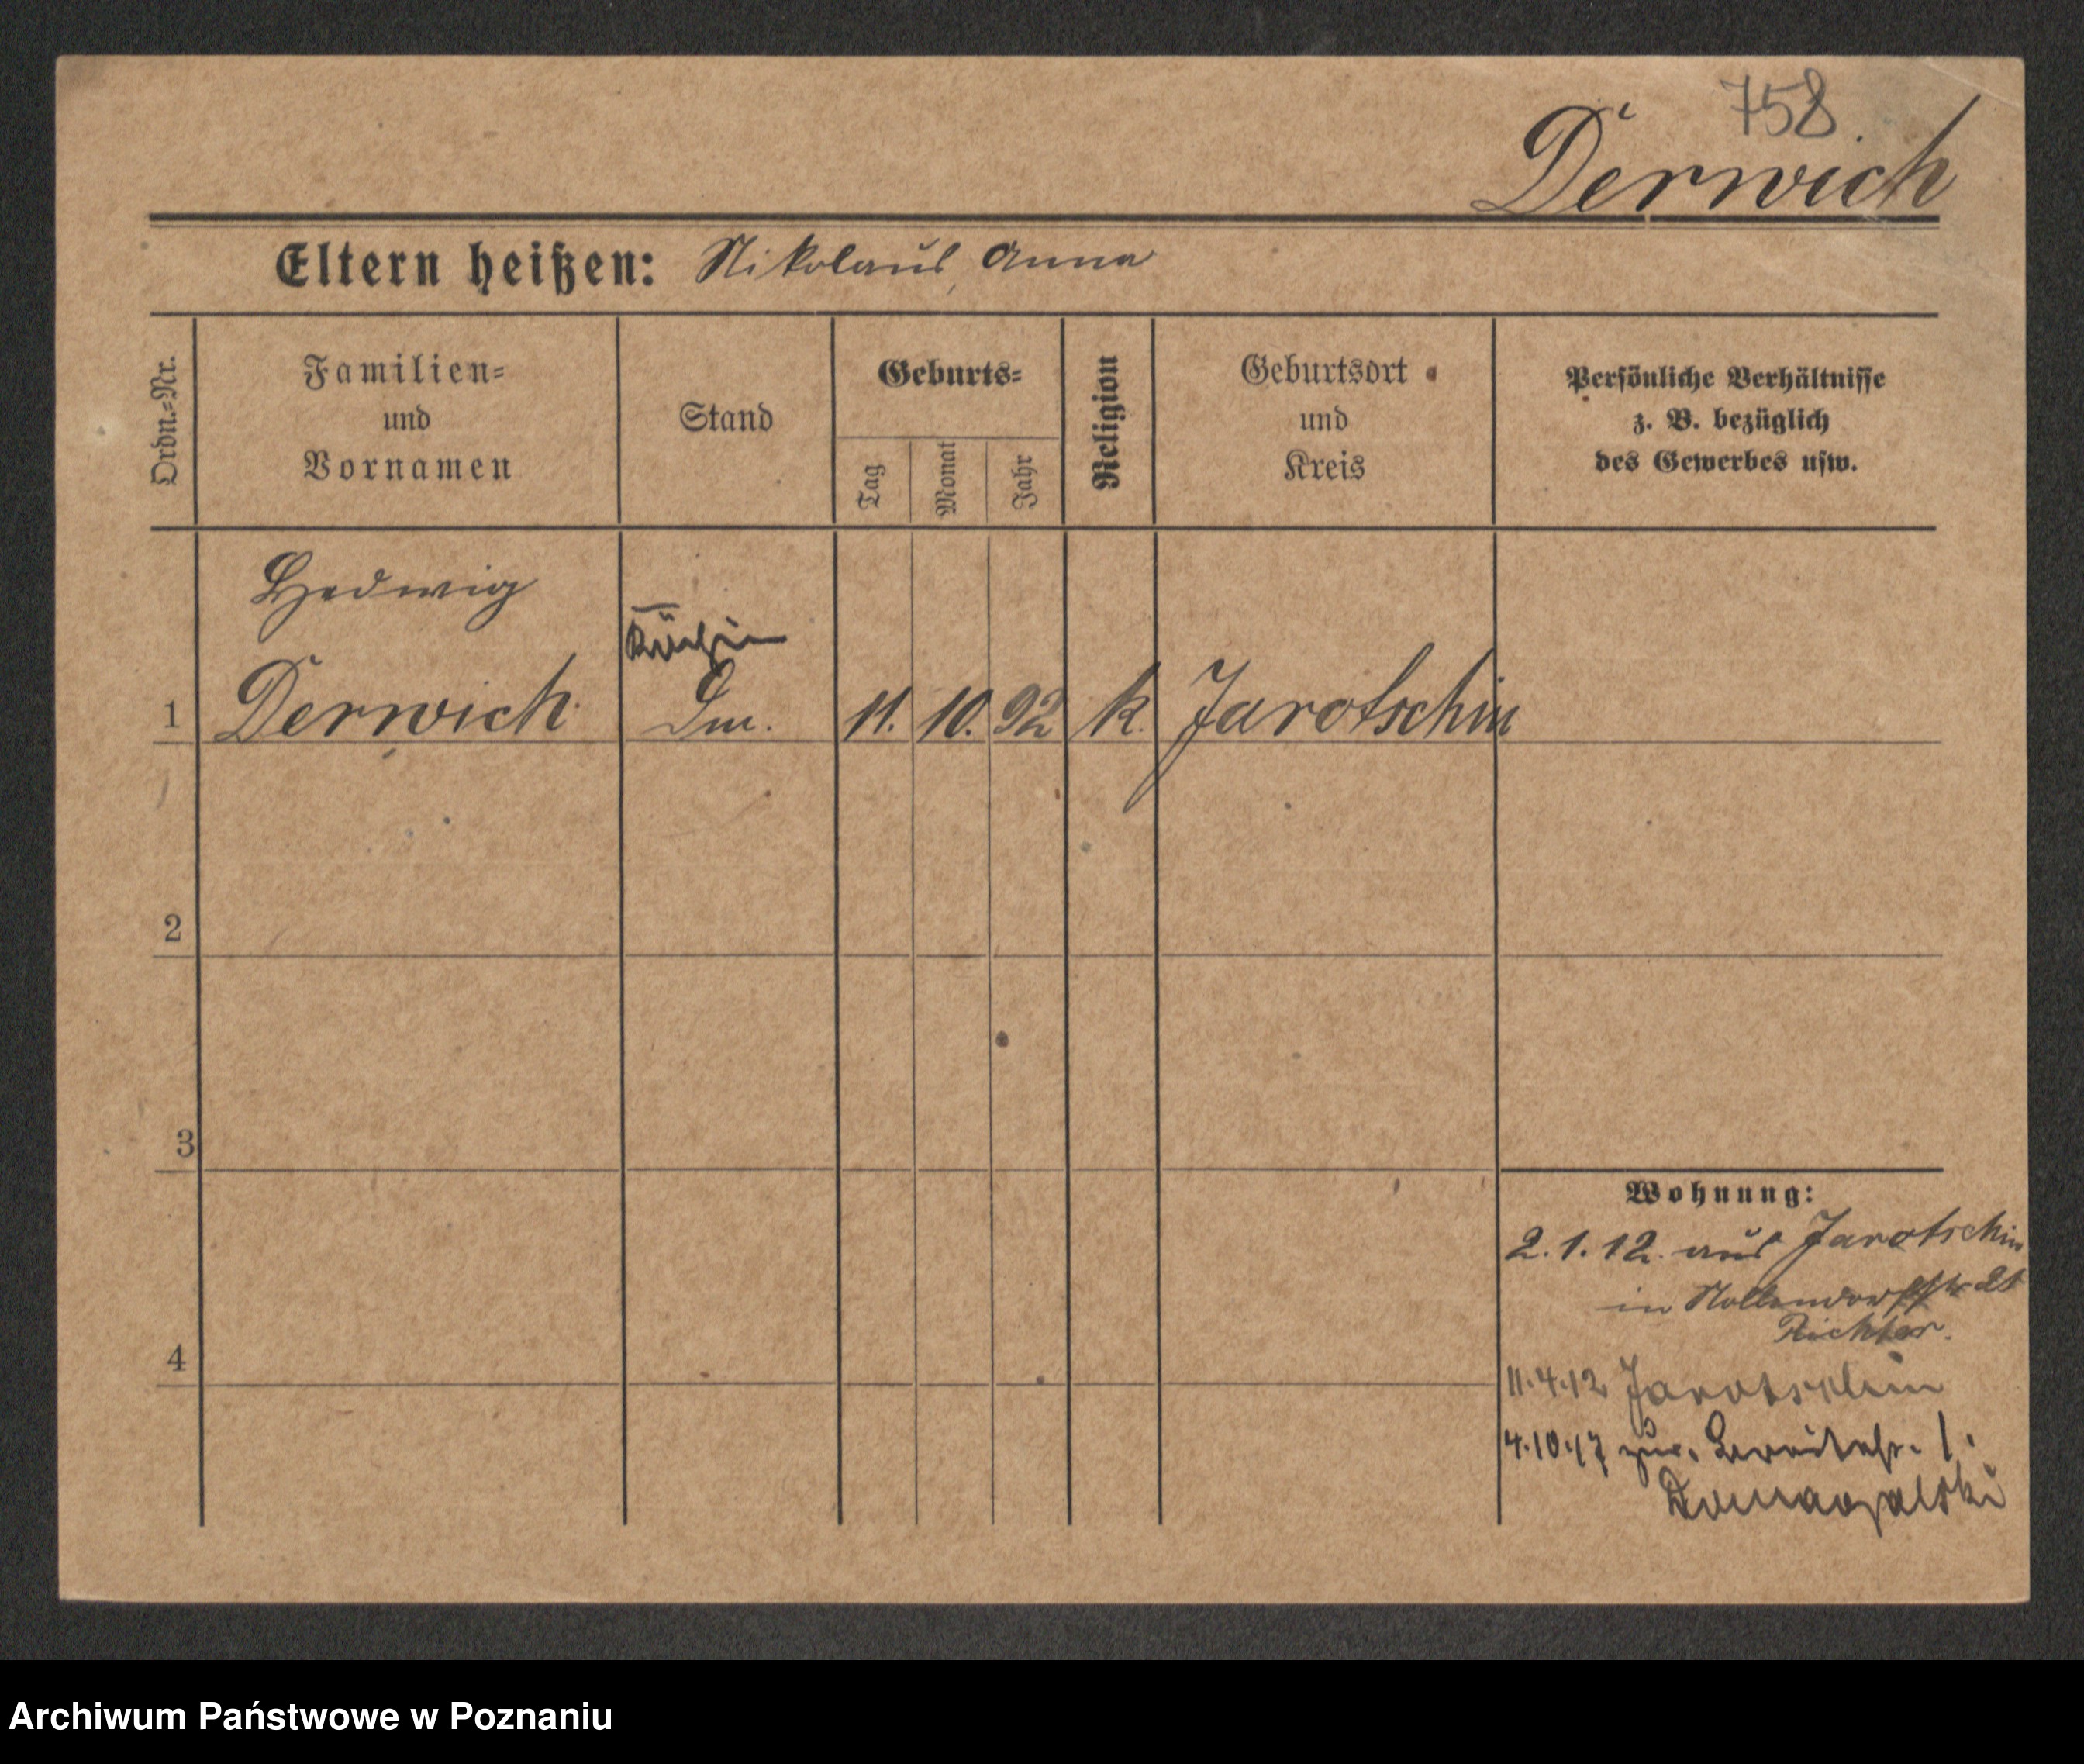 758
Derwich
Eltern heißen: Nikolaus, Anna
Ordn.=Nr.
Familien=
und
Vornamen
Stand
Geburts=
Tag
Monat
Jahr
Religion
Geburtsort
und
Kreis
Persönliche Verhältnisse
z. B. bezüglich
des Gewerbes usw.
Hedwig
Köchin
1 Derwich 11. 10. 92 k. Jarotschin
2
3
Wohnung:
2.1.12. aus Jarotschin
in Nollendorfstr
Richter.
4
11.4.12 Jarotschin
4.10.17 zur. Breitestr. 1.
Domagalski
Archiwum Państwowe w Poznaniu